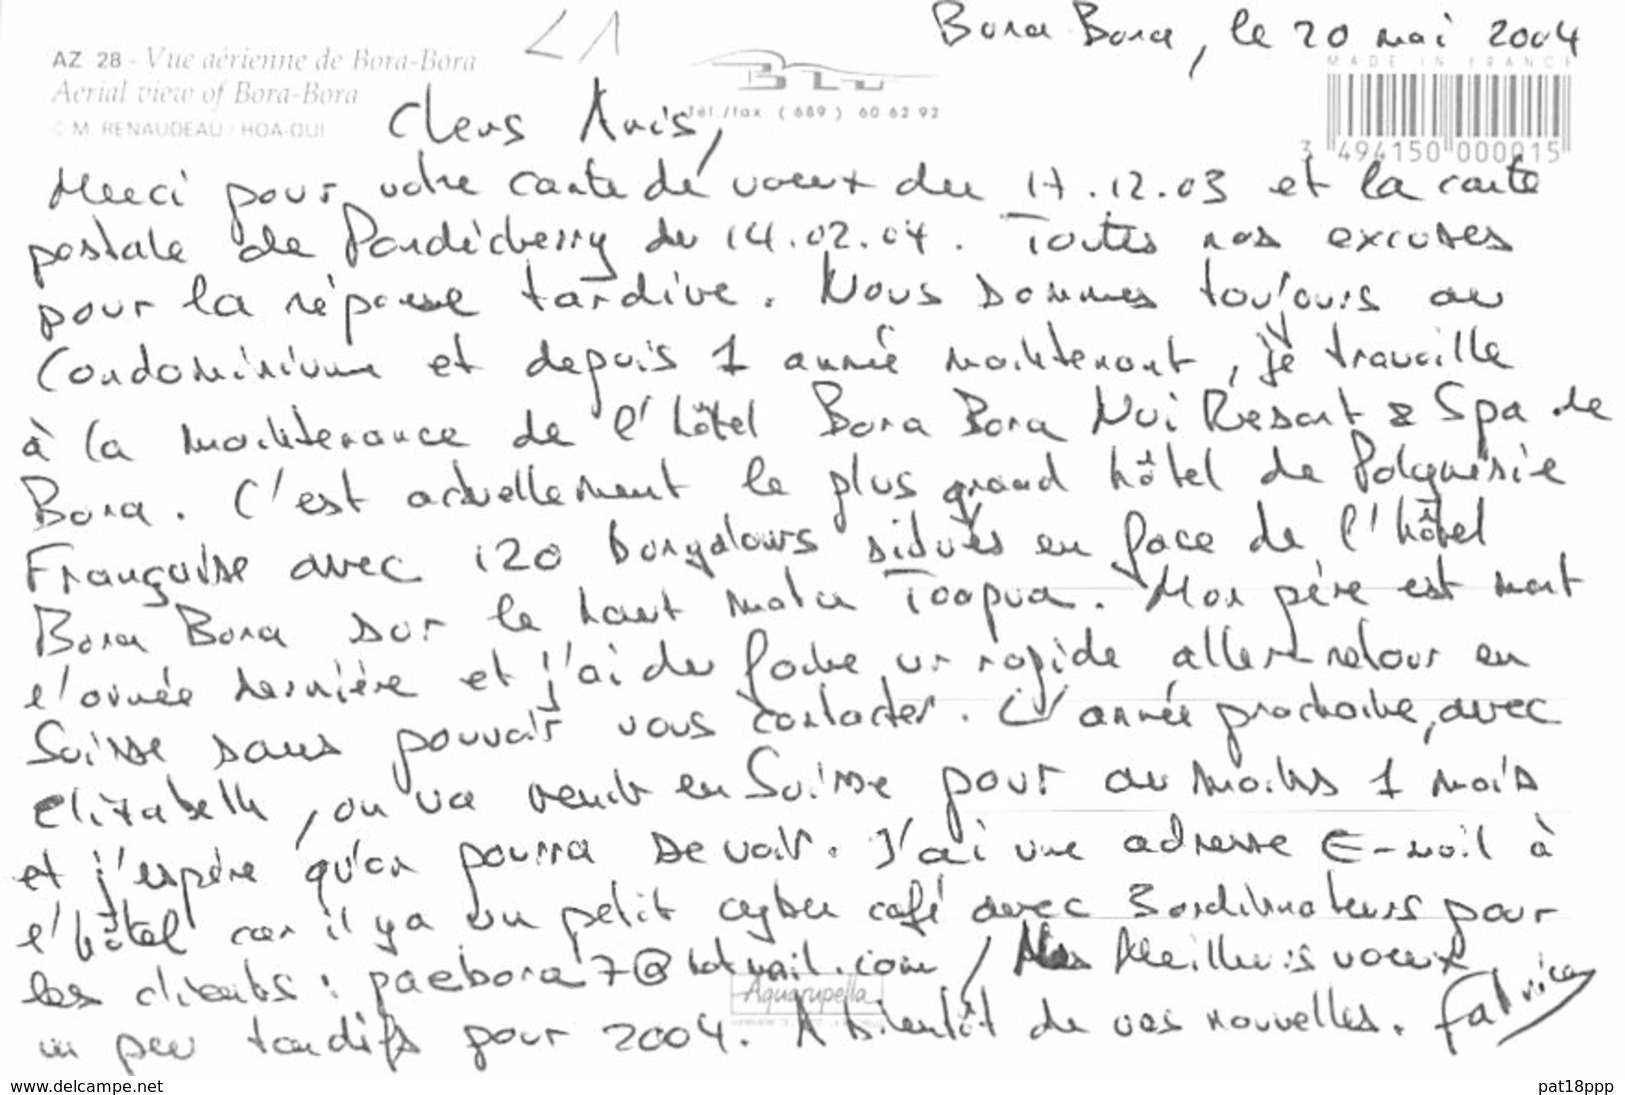 Bora Bora, le 20 mai 2004
AZ 28 - Vue aérienne de Bora-Bora
Aerial view of Bora-Bora
© M. RENAUDEAU / HOA-QUI
BLU
Tél./fax. (689) 60 62 92
MADE IN FRANCE
3 494150 000015
Chers Amis,
Merci pour votre carte de voeux du 17.12.03 et la carte
postale de Pondichérry du 14.02.04. Toutes nos excuses
pour la réponse tardive. Nous sommes toujours au
Condominium et depuis 1 année maintenant, je travaille
à la maintenance de l'hôtel Bora Bora Nui Resort & Spa de
Bora. C'est actuellement le plus grand hôtel de Polynésie
Française avec 120 bungalows situés en face de l'hôtel
Bora Bora sur le haut motu Toopua. Mon père est mort
l'année dernière et j'ai du faire un rapide aller-retour en
Suisse sans pouvoir vous contacter. L'année prochaine, avec
Elizabeth, on va venir en Suisse pour au moins 1 mois
et j'espère qu'on pourra se voir. J'ai une adresse E-mail à
l'hôtel car il y a un petit cyber café avec 3 ordinateurs pour
les clients : paebora7@hotmail.com / Meilleurs voeux
un peu tardifs pour 2004. A bientôt de vos nouvelles. Fabrice
Aquarupella
www.delcampe.net
pat18ppp